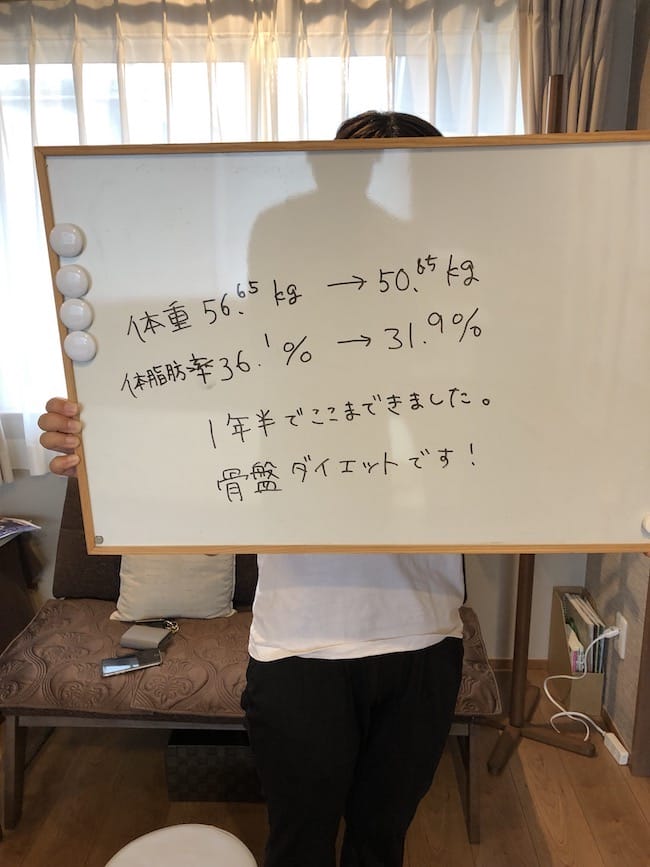 体重 56.65 kg → 50.65 kg
体脂肪率 36.1% → 31.9%
1年半でここまできました。
骨盤ダイエットです!